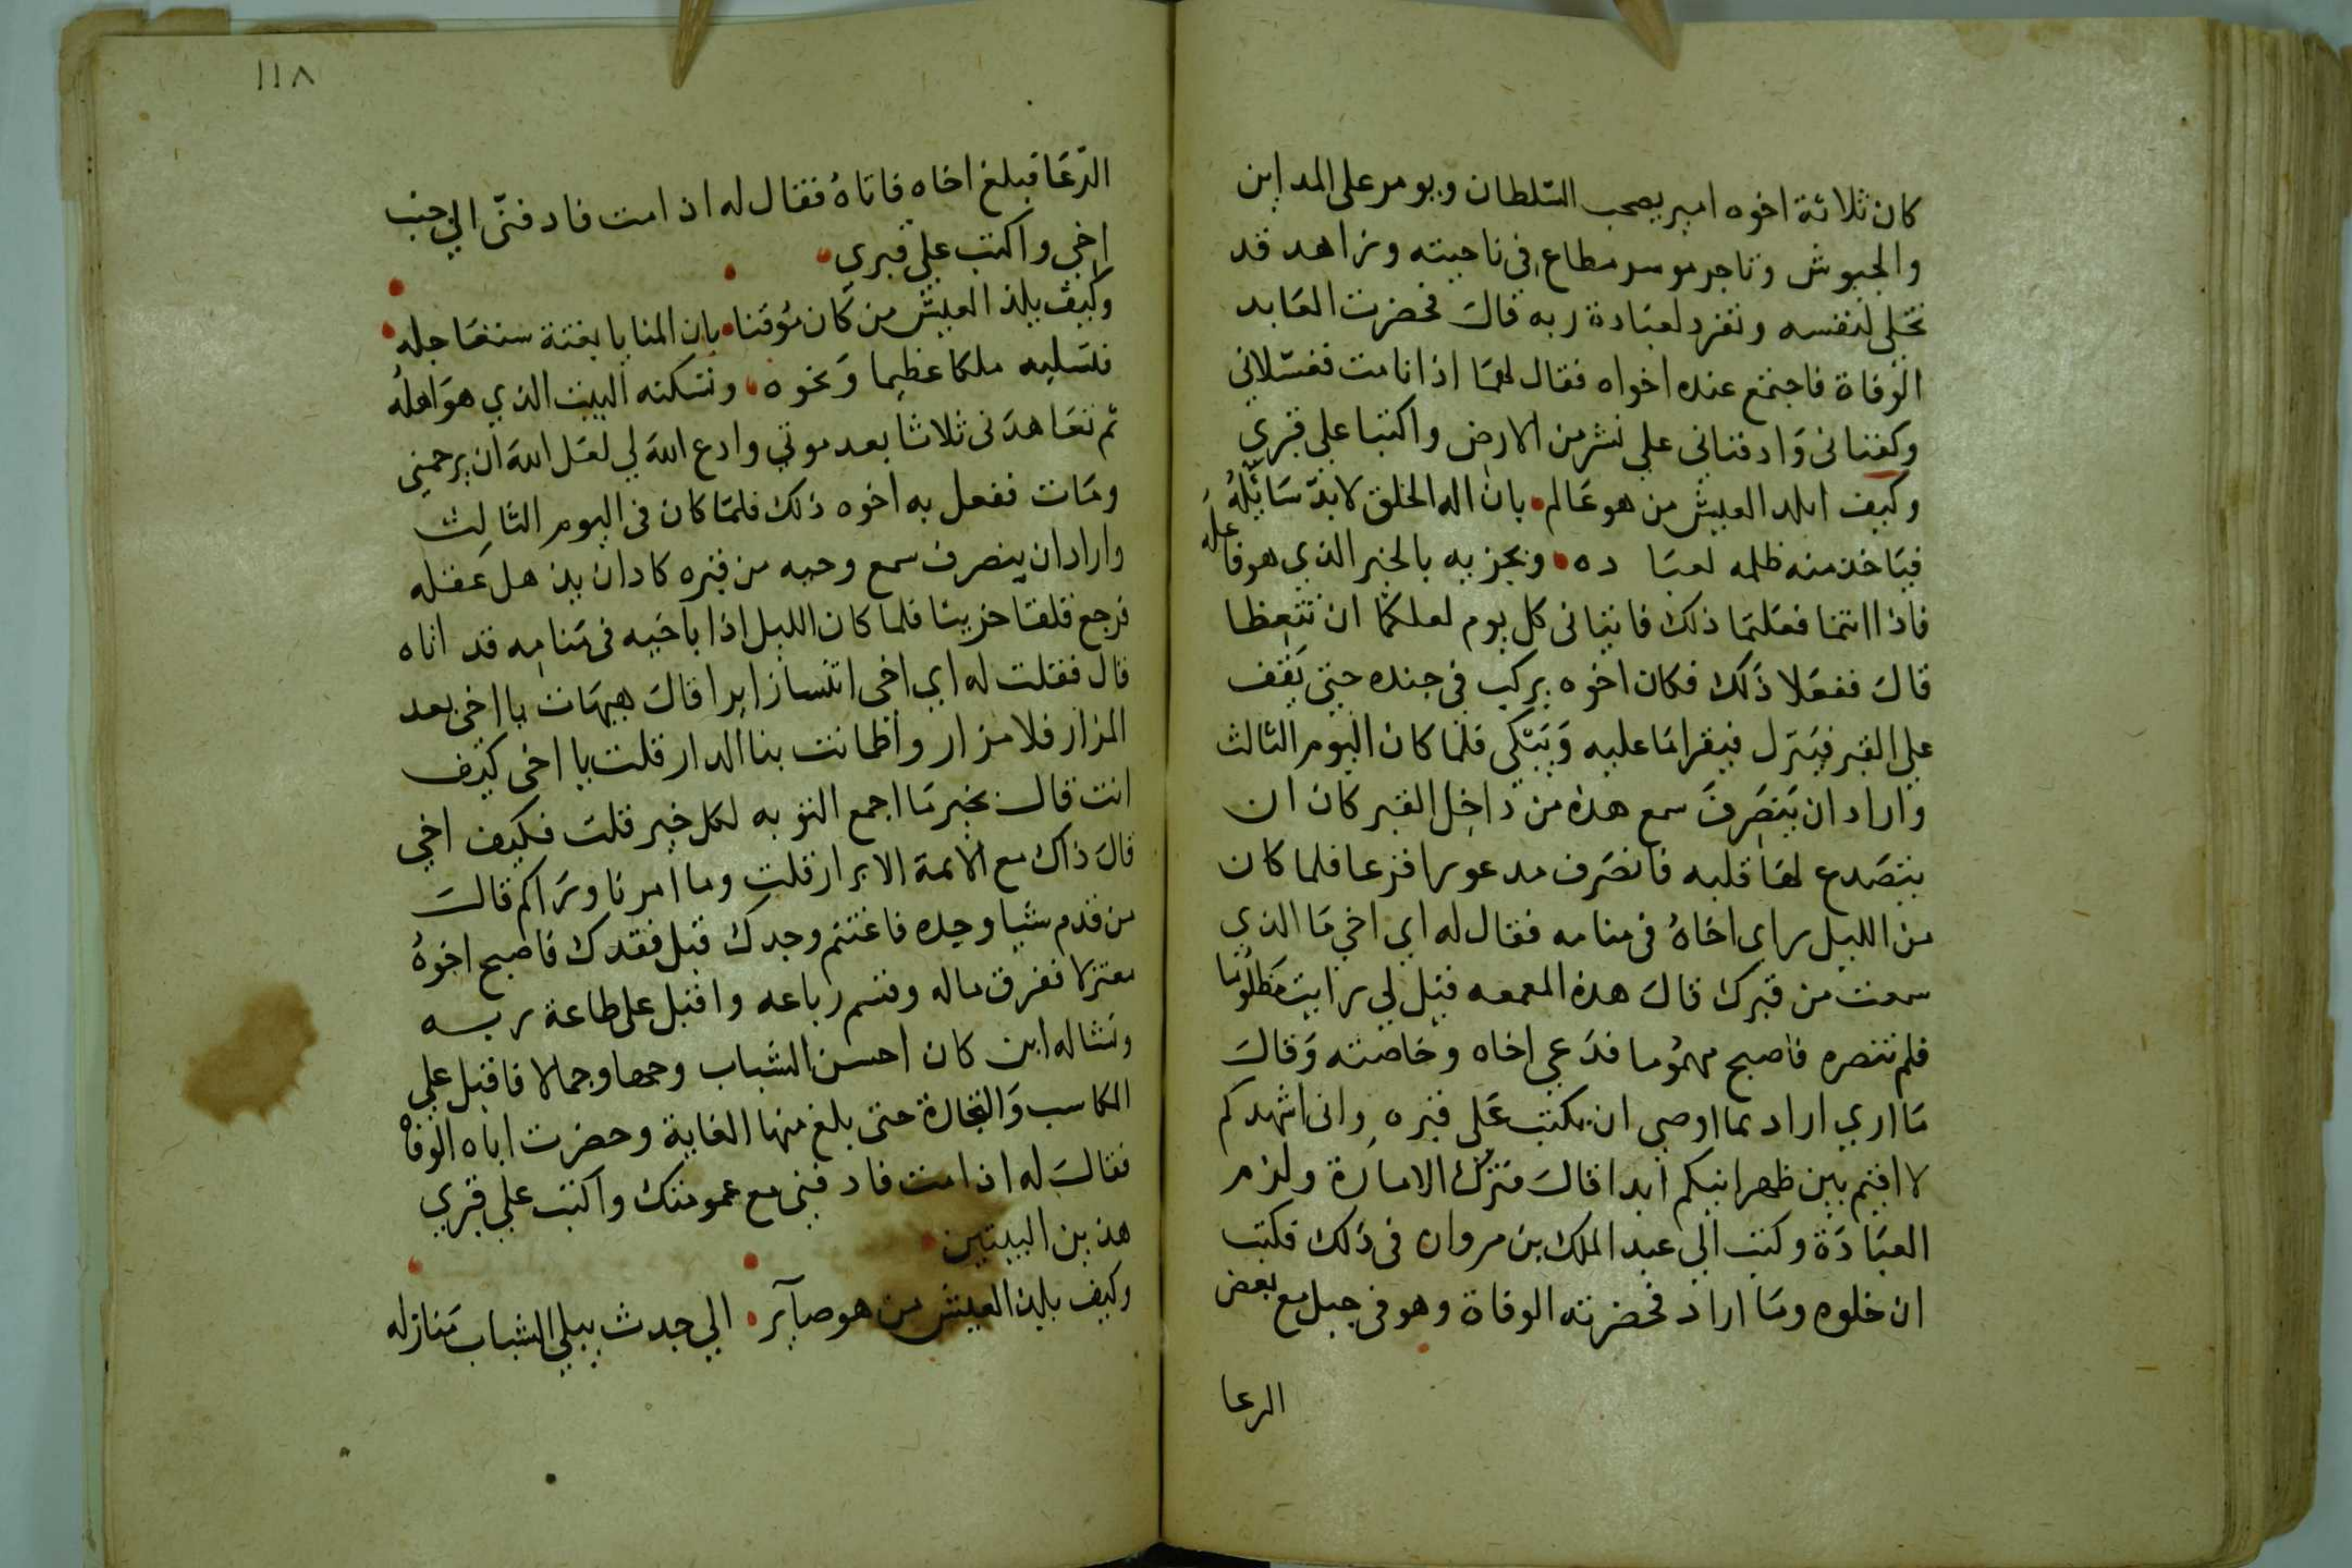 كان ثلاثة اخوه امير يصحب السّلطان ويومر على المداين
والجيوش وتاجر موسر مطاع في ناحيته وزاهد قد
تخلى لنفسه وتفرد لعبادة ربه قال فحضرت العابد
الوفاة فاجتمع عنده اخواه فقال لهما اذا انا مت فغسّلاني
وكفناني وَادفناني علي نشز من الارض واكتبا علي قبري
وكيف يلد العيش من هو عَالم بان اله الخلق لا بدّ سَائلهُ
فيَاخذ منه ظلمه لعبَا ده ويجزيه بالخير الذي هو فاعله
فاذا انتما فعَلتمَا ذلك فاتياني كل يوم لعلكما ان تتعِظا
قال ففعَلا ذَلك فكان اخوه يركب في جنده حتى يَقف
علي القبر فيَنزل فيقرا مَا عليه وَيَبَكي فلما كان اليوم الثالث
واراد ان يَنصَرفَ سمع هذه من داخِل القبر كان ان
يتصَدع لهَا قلبه فانصَرف مدعورا فزعا فلما كان
من الليل راي اخاهُ في منامه فقال له اي اخي مَا الذي
سمعت من قبرك قال هذه المعمعه قيل لي رايت مَظلُومَا
فلم تنصره فاصبح مهمُوما فدَعي اخاه وخاصته وَقالَ
مَا اري اراد بما اوصي ان يكتب عَلى قبره واني اشهدكم
لا اقيم بين ظهرانيكم ابدا قالَ فترك الامارة ولزم
العبَادَة وكتب الي عبد الملك بن مروان في ذلك فكتب
ان خلوه ومَا اراد فحضرته الوفاة وهو في جبل مع بعض
الرعا
١١٨
الرّعَا فبلغ اخاه فاتاهُ فقال له اذا مت فادفنّي الي جنب
اخي واكتب علي قبري
وكيف يلذ العيش من كان مُوقنا بان المنايا بغتة ستعَاجله
فتسَلبه ملكا عظيما وَنخوه وتسكنه البيت الذي هوَ اهلهُ
ثم تعَاهدَني ثلاثا بعد موتي وادع اللهَ لي لعَل اللهَ ان يرحمني
ومَات ففعل به اخوه ذلك فلمّا كان في اليوم الثالِث
واراد ان ينصرف سمع وجبه من قبره كاد ان يذهل عَقله
فرجع قلقا حزينا فلما كان الليل اذا باخيه في مَنامِه قد اتاه
قال فقلت له اي اخي اتتسا زايرا قالَ هيهَات يا اخي بعد
المزار فلا مزار واطمانت بنا الدار قلت يا اخي كيف
انت قال بخير مَا اجمع التوبه لكل خير قلت فكيف اخي
قالَ ذاك مع الائمة الابرار قلت وما امرنا وترَاكم قالَ
من قدم شيا وجده فاغتنم وجدك قبل فقدك فاصبح اخوهُ
معتزلا ففرق ماله وقسم رباعه واقبل على طاعة ربه
ونشا له ابن كان احسن الشباب وجها وجمالا فاقبل علي
المكاسب وَالتجارة حتى بلغ منها الغاية وحضرت اباه الوفاه
فقالَ له اذا مت فادفني مع عمومتك واكتب علي قبري
هذين البيتين
وكيف يلذ العيش من هو صآير الي جدث يبلي الشباب مَنازله